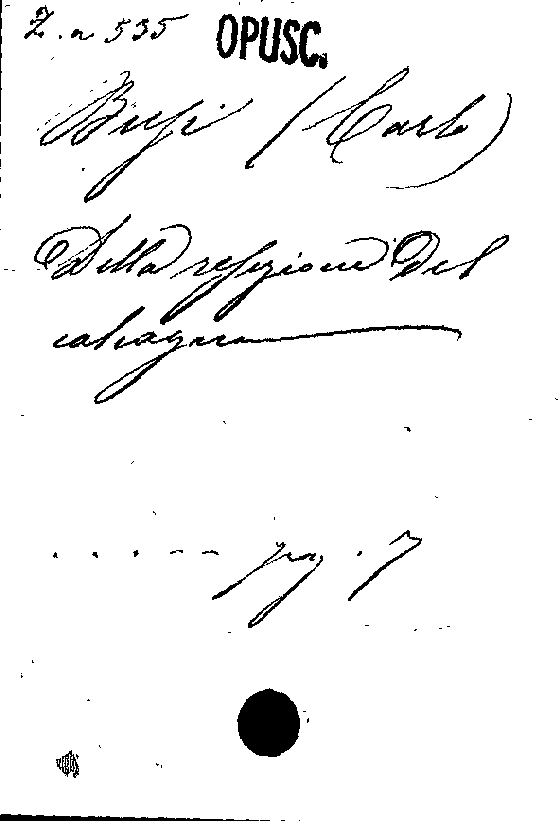 Z. n 535 OPUSC.
Bressi (Carlo)
Della resezione del
calcagno
. . . . . pag. 7